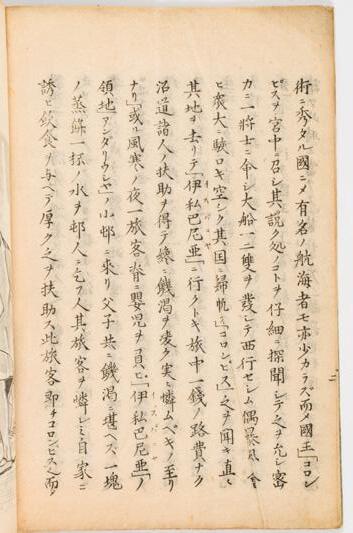 術ニ秀タル國ニメ有名ノ航海者モ亦少カラズ而メ國王「コロン
ビス」ヲ宮中ニ召シ其説ク処ノコトヲ仔細ニ探聞シテ之ヲ允シ密
カニ一將士ニ命シ大船一二雙ヲ發シテ西行セシム偶暴風ニ會
ヒ衆大ニ駭ロキ空シク其国ニ歸帆ス「コロンビス」之ヲ聞キ直ニ
其地ヲ去リテ「伊私巴尼亜」ニ行クトキ旅中一錢ノ路費ナク
沿道諸人ノ扶助ヲ得テ纔ニ饑渇ヲ凌ク実ニ憐ムベキノ至リ
ナリ」或ル風寒ノ夜一旅客脊ニ嬰児ヲ負ヒ「伊私巴尼亜」ノ
領地「アンダリウシヤ」ノ小邨ニ来リ父子共ニ饑渇ニ堪ヘス一塊
ノ蒸餅一抔ノ水ヲ邨人ニ乞フ人其旅客ヲ憐レミ自家ニ
誘ヒ飲食ヲ与ヘテ厚ク之ヲ扶助ス此旅客即チコロンビス之而メ